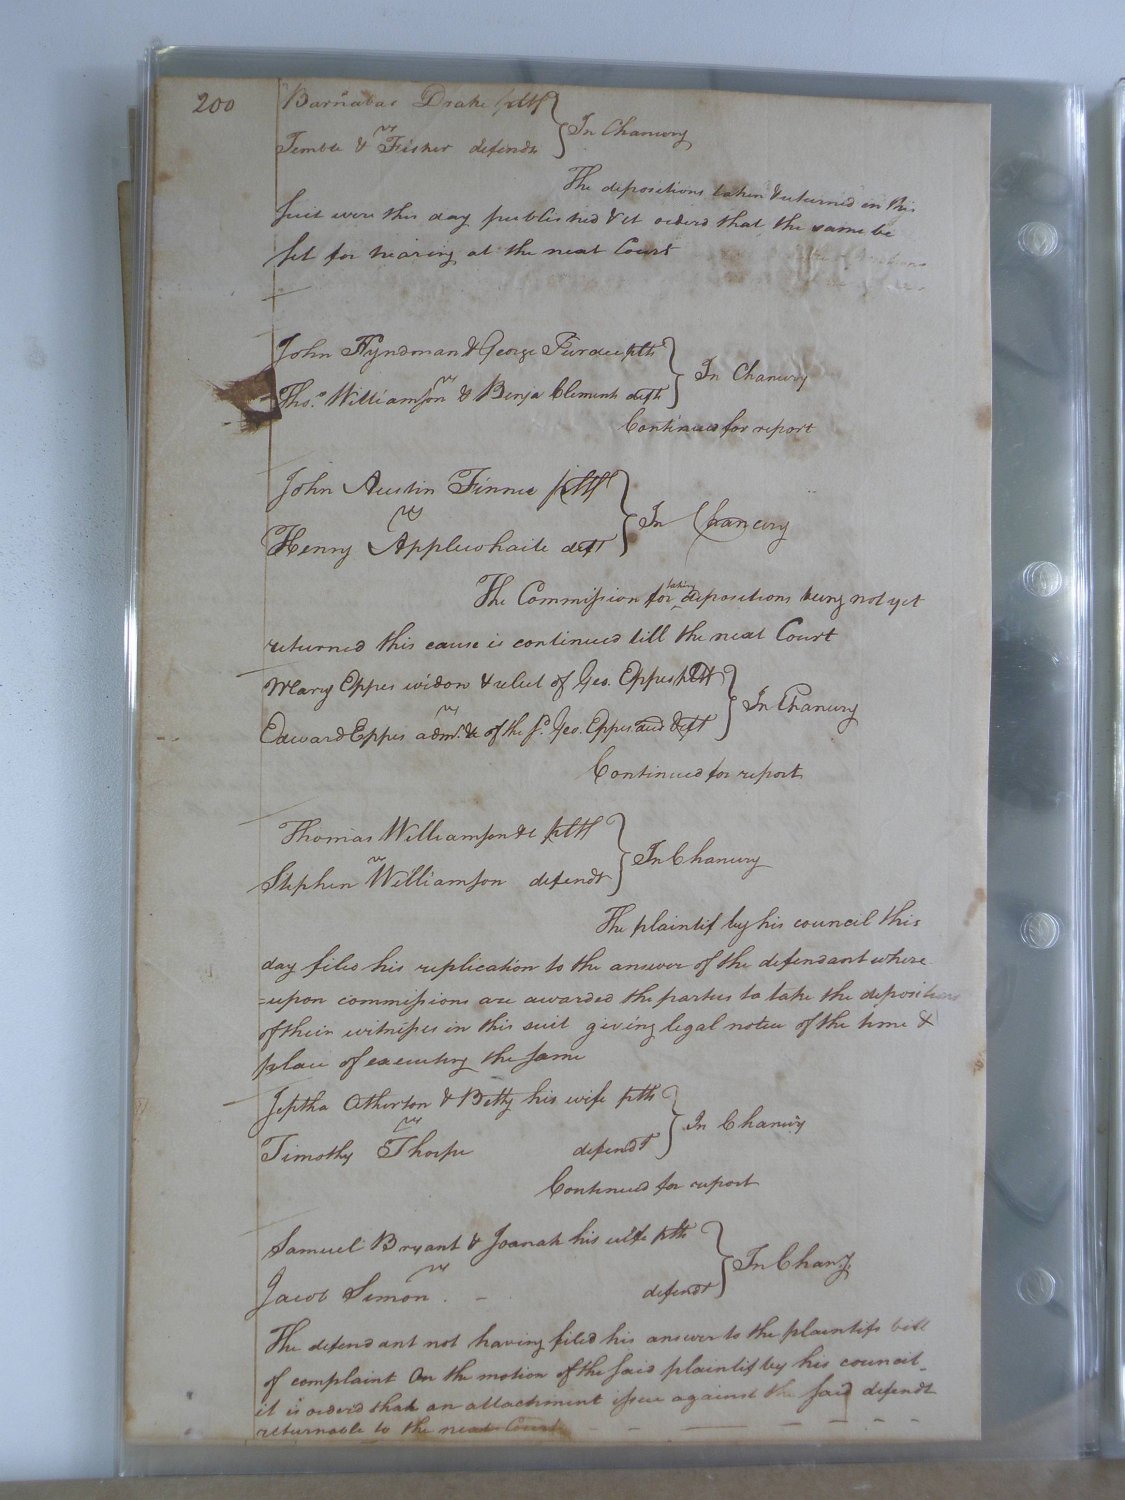 200
Barnabas Drake pltf
vs
Temble & Fisher defends
In Chancery
The depositions taken & returned in this
suit were this day published & it orderd that the same be
set for hearing at the next Court
John Hyndman & George Purdie plts
vs
Thos. Williamson & Benja Clements defts
In Chancery
Continued for report
John Austin Finnie pltf
vs
Henry Applewhaite deft
In Chancery
The Commission for taking depositions being not yet
returned this cause is continued till the next Court
Mary Eppes widow & relict of Geo. Eppes pltf
vs
Edward Eppes admr. &c of the sd. Geo. Eppes decd deft
In Chancery
Continued for report
Thomas Williamson &c pltf
vs
Stephen Williamson defendt
In Chancery
The plaintif by his council this
day filed his replication to the answer of the defendant where
=upon commissions are awarded the parties to take the depositions
of their witnesses in this suit giving legal notice of the time &
place of executing the same
Jeptha Atherton & Betty his wife plts
vs
Timothy Thorpe defendt
In Chancery
Continued for report
Samuel Bryant & Joanah his wife plts
vs
Jacob Simon defendt
In Chany.
The defendant not having filed his answer to the plaintifs bill
of complaint On the motion of the said plaintif by his council
it is orderd that an attachment issue against the said defendt
returnable to the next Court